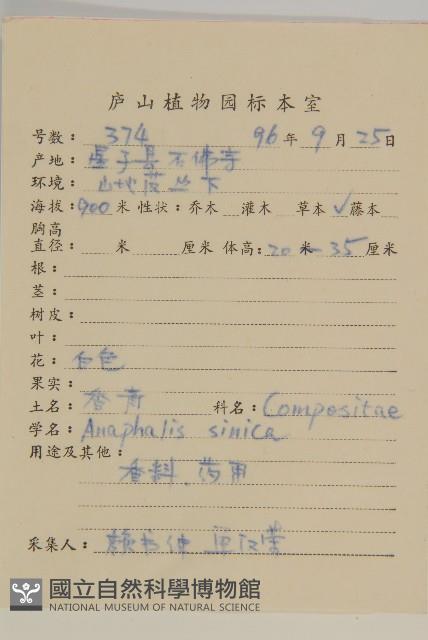 庐山植物园标本室
号数：374 96年9月25日
产地：星子县石佛寺
环境：山地茂丛下
海拔：900米 性状：乔木 灌木 草本✓藤本
胸高
直径： 米 厘米 体高：20米—35厘米
根：
茎：
树皮：
叶：
花：白色
果实：
土名：香青 科名：Compositae
学名：Anaphalis sinica
用途及其他：
香料、药用
采集人：
國立自然科學博物館
NATIONAL MUSEUM OF NATURAL SCIENCE